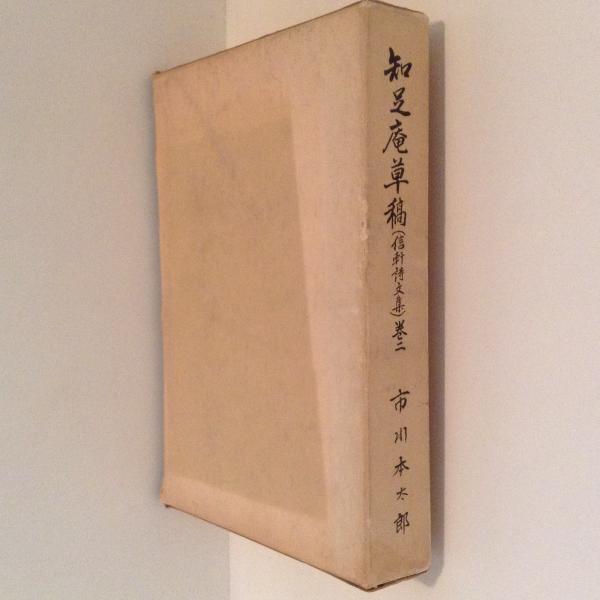 知足庵草稿(信軒詩文集)巻二
市川本太郎